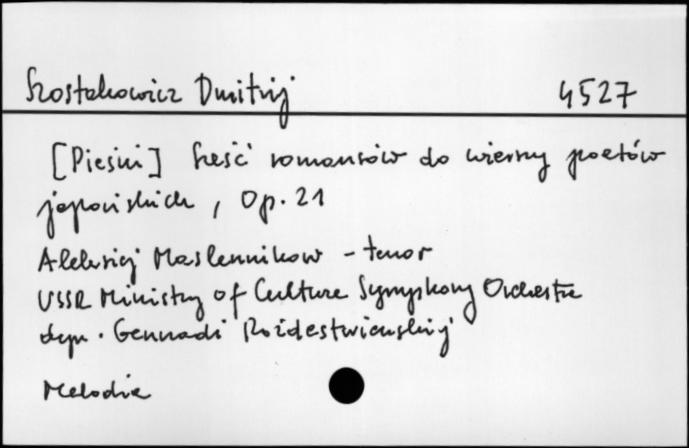 Szostakowicz Dmitrij 4527
[Pieśni] Sześć romansów do wierszy poetów
japońskich, Op. 21
Aleksiej Maslennikow - tenor
USSR Ministry of Culture Symphony Orchestra
dyr. Gennadi Rożdestwienskij
Melodia